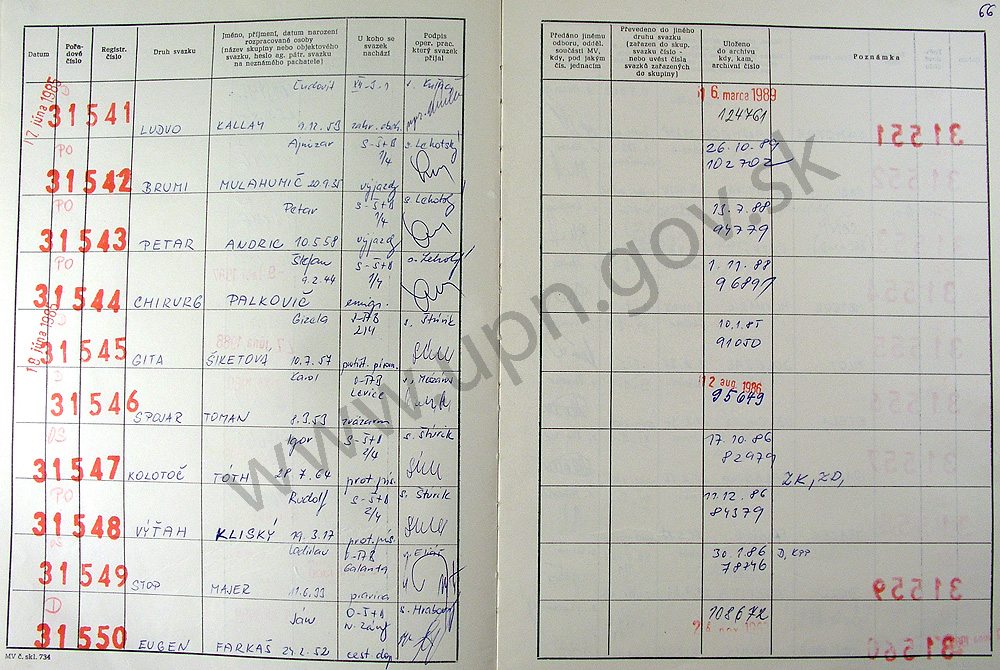 66
Datum
Pořadové číslo
Registr. číslo
Druh svazku
Jméno, příjmení, datum narození rozpracované osoby (název skupiny nebo objektového svazku, heslo ag. pátr. svazku na neznámého pachatele)
U koho se svazek nachází
Podpis oper. prac. který svazek přijal
Předáno jinému odboru, odděl. součásti MV, kdy, pod jakým čís. jednacím
Převedeno do jiného druhu svazku (zařazen do skup. svazku číslo - nebo uvést čísla svazků zařazených do skupiny)
Uloženo do archivu kdy, kam, archivní číslo
Poznámka
17. júna 1985
31541 LUDVO KALLAY Ľudovít 9.12.53 XII-S-1 zahr. obch.
16. marca 1989
124761
PO
31542 BRUMI MULAHUMIČ 20.9.35 S-Š+B 1/4 výjazdy s. Lehotský
26.10.89
102702
PO
31543 PETAR ANDRIC Petar 10.5.58 S-Š+B 1/4 výjazdy s. Lehotský
13.7.88
94779
PO
31544 CHIRURG PALKOVIČ Štefan 9.2.44 S-Š+B 1/4 emigr. s. Lehotský
1.11.88
96897
18. júna 1985
31545 GITA ŠIKETOVÁ Gizela 10.7.57 2/4 s. Štúrik
91050
31546 SPOJAR TOMAN Karol 8.3.53 Levice
12. aug. 1986
95649
31547 KOLOTOČ TÓTH Igor 28.7.64 S-Š+B 2/4 prot. pís. s. Štúrik
17.10.86
82979
ZK, ZD,
PO
31548 VÝŤAH KLISKÝ Rudolf 19.3.17 S-Š+B 2/4 prot. pís. s. Štúrik
11.12.86
84379
31549 STOP MAJER Ladislav 11.6.33 Galanta
30.1.86
78746
D, KPP
D
31550 EUGEN FARKAŠ Ján 24.2.52 O-Š+B N. Zámky cest. s. Hrabovský
108672
MV č. skl. 734
www.upn.gov.sk